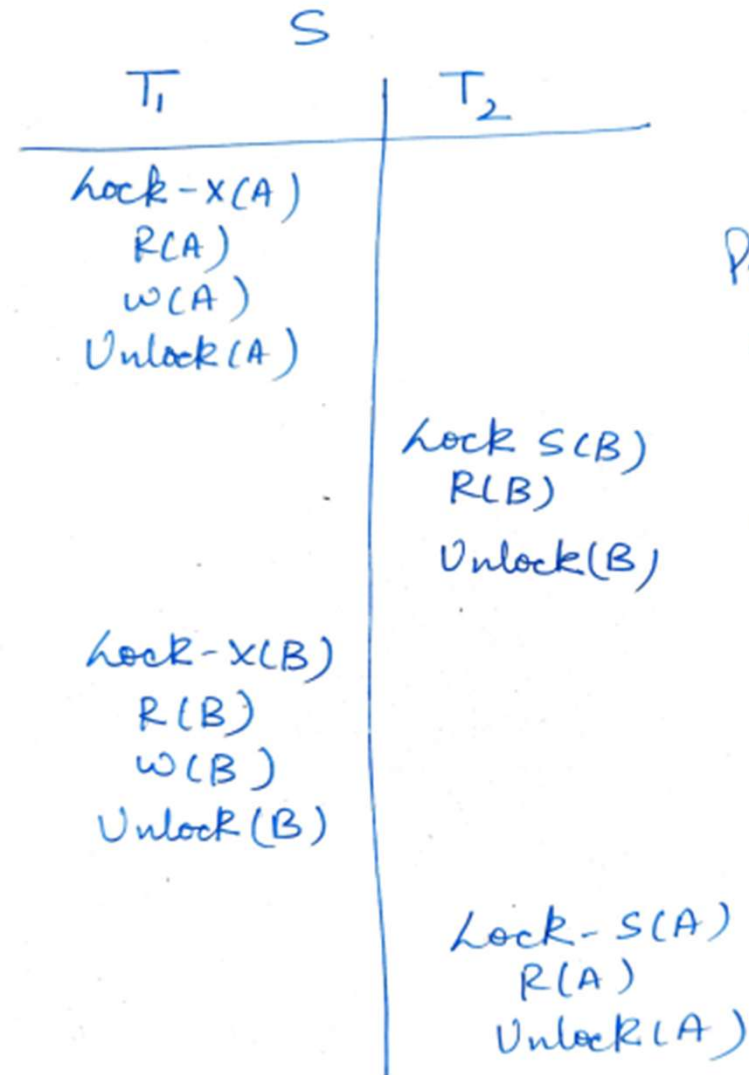 S
T₁ T₂
Lock-X(A)
R(A)
W(A)
Unlock(A)
Lock S(B)
R(B)
Unlock(B)
Lock-X(B)
R(B)
W(B)
Unlock(B)
Lock-S(A)
R(A)
Unlock(A)